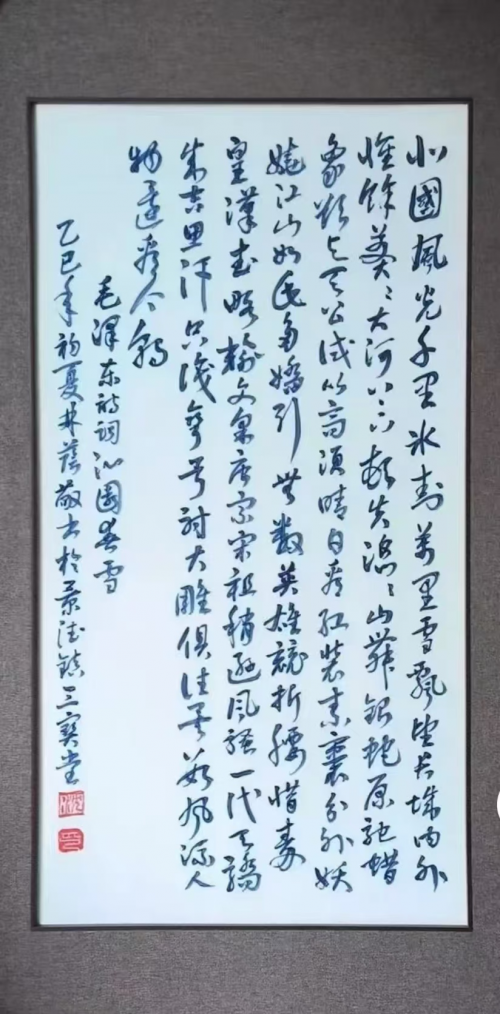 北國風光千里冰封萬里雪飘望长城内外
惟餘莽〻大河上下頓失滔〻山舞銀蛇原馳蜡
象欲与天公试比高须晴日看红装素裹分外妖
娆江山如此多嬌引無数英雄競折腰惜秦
皇漢武略輸文采唐宗宋祖稍逊风騷一代天驕
成吉思汗只识弯弓射大雕俱往矣数风流人
物还看今朝
毛澤东诗词沁園春雪
乙巳年初夏林蔭敬书於景德鎮三寶堂